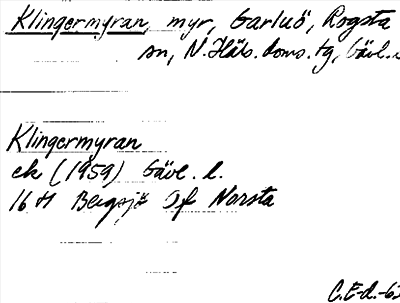 Klingermyran, myr, Garluö, Rogsta
sn, N. Häls. doms. tg, Gävl.
Klingermyran
ek (1959) Gävl. l.
16 H Bergsjö Of Norsta
C.E-d.-6